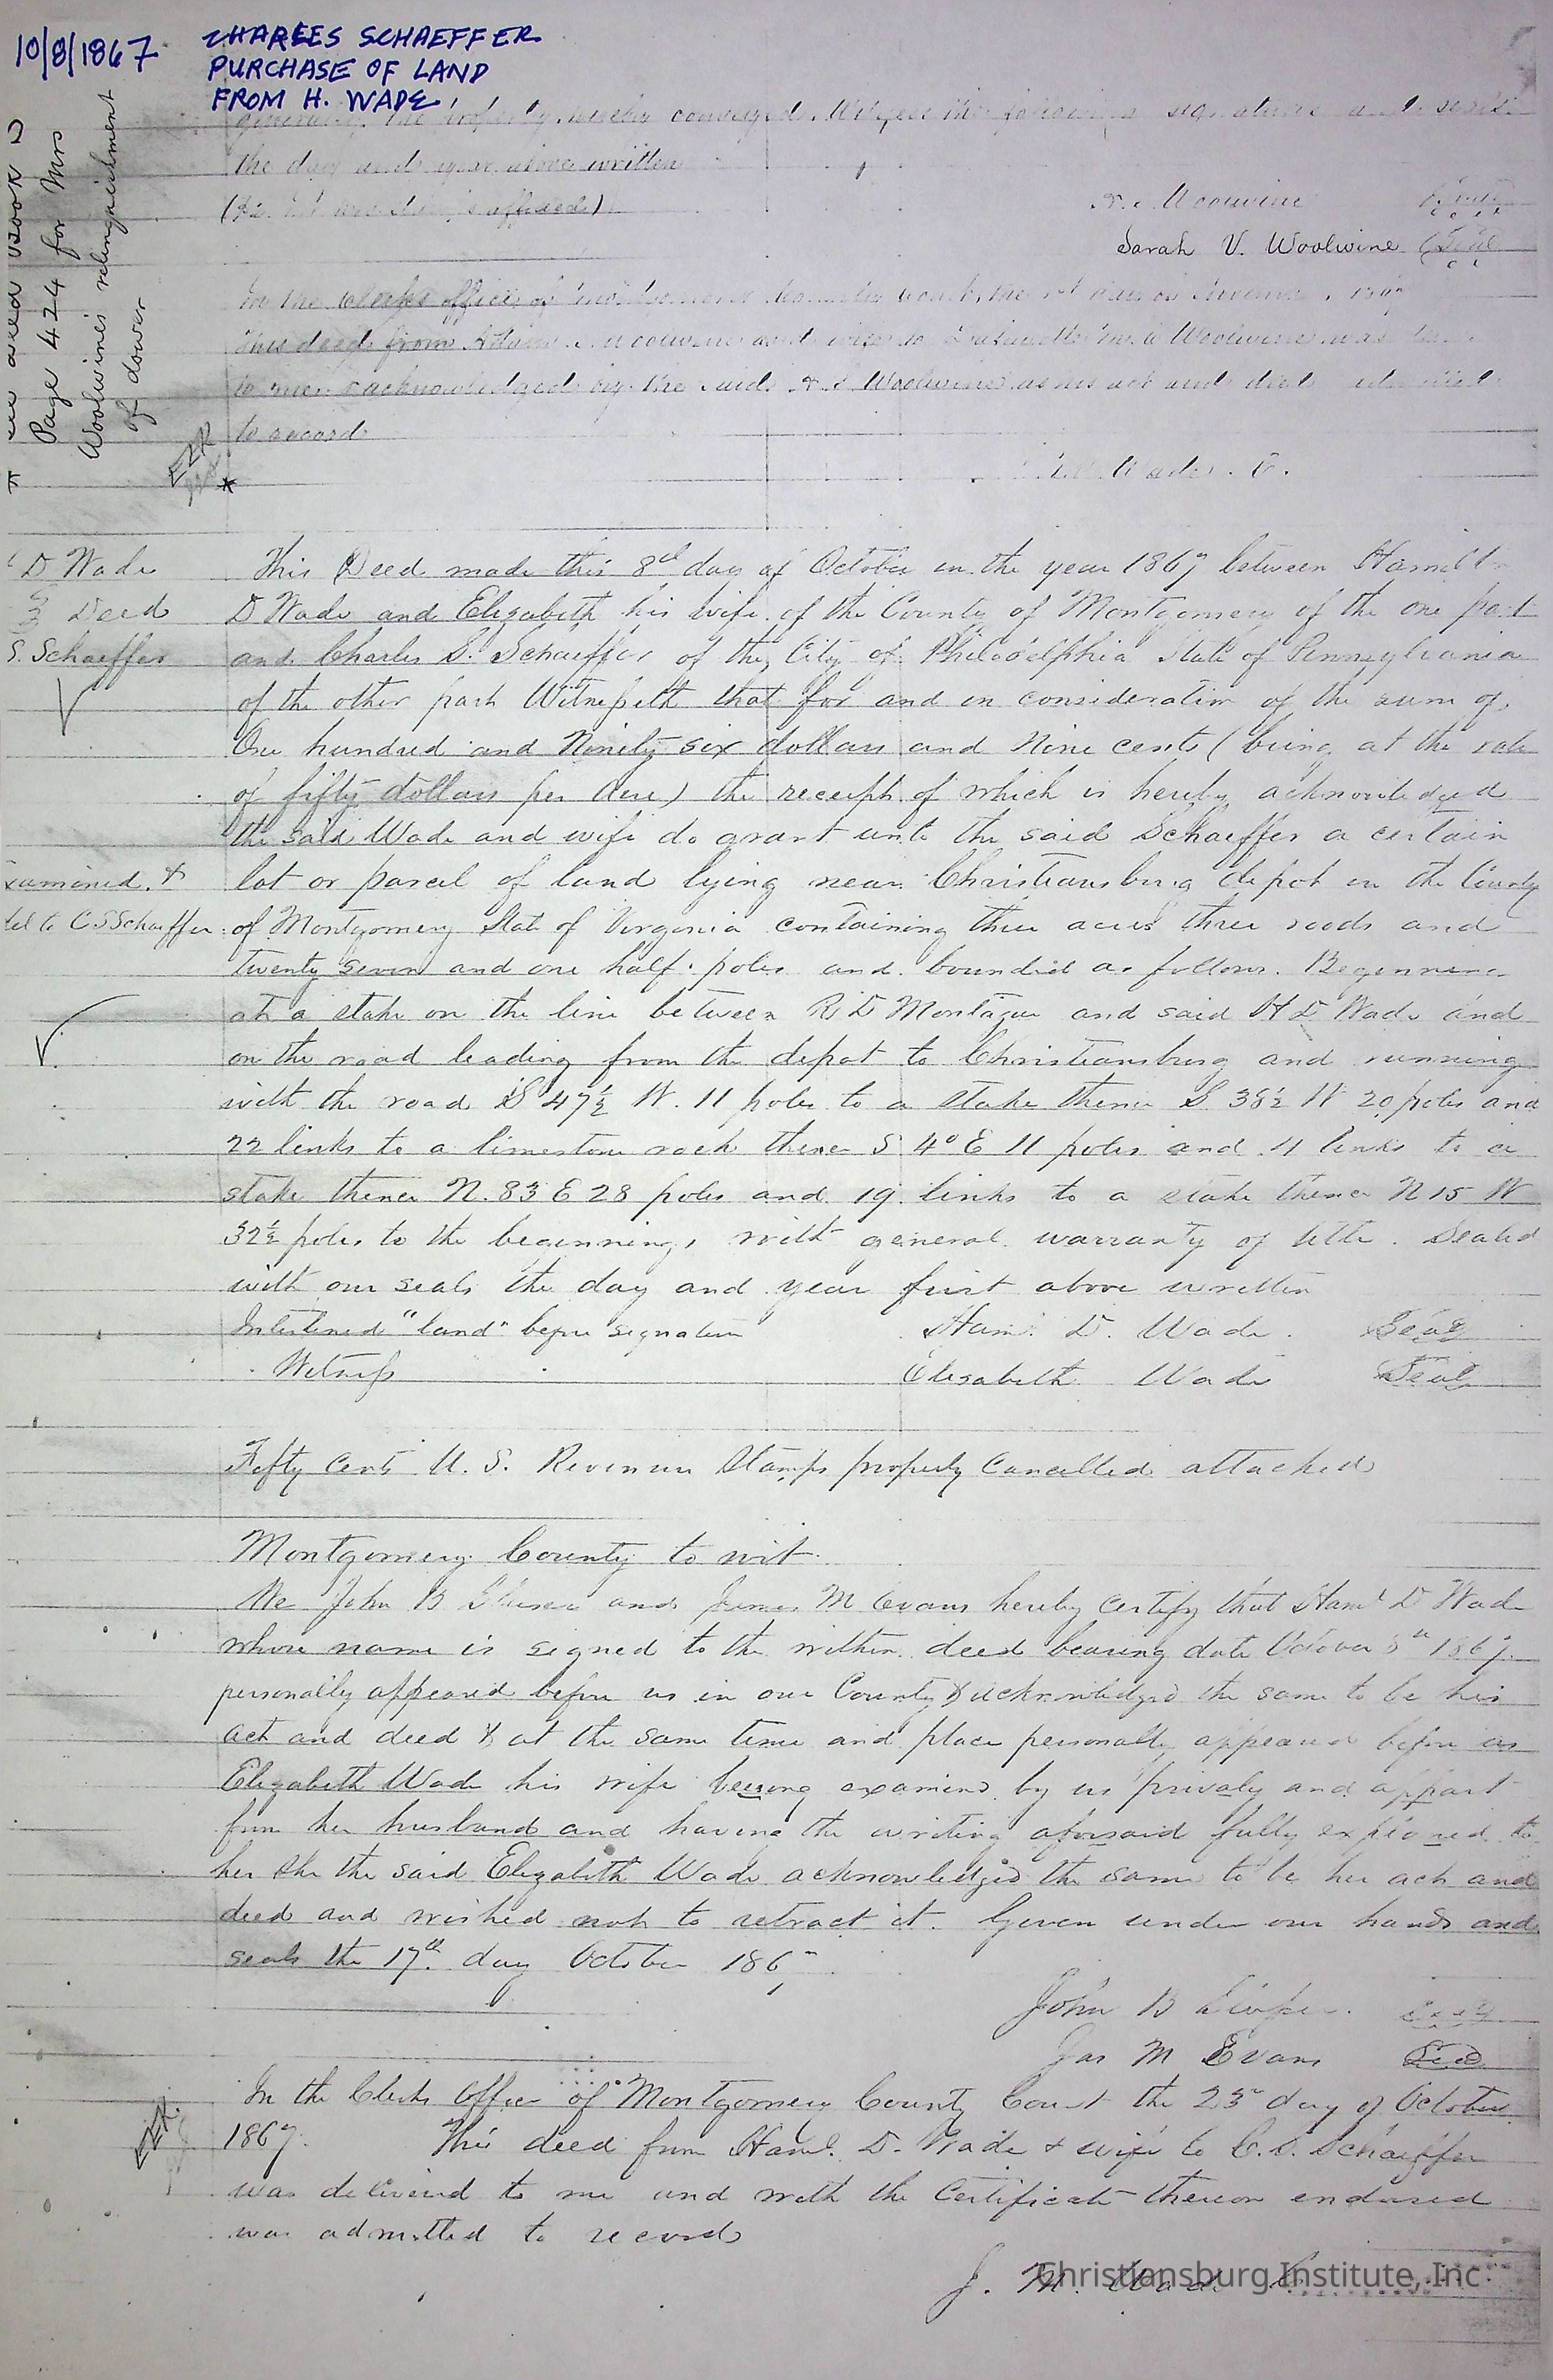 10/8/1867
CHARLES SCHAEFFER
PURCHASE OF LAND
FROM H. WADE
Page 424 for Mrs
Woolwine's relinquishment
of dower
hereby conveyed. Witness the following signatures and seals
the day and year above written
Woolwine
Sarah V. Woolwine (Seal)
In the Clerks office of Montgomery County Court, the
This deed from Woolwine and wife to Woolwine was
to me acknowledged by the said Woolwine as his act and deed admitted
to record
*
D Wade
3 Deed
S. Schaeffer
This Deed made this 8th day of October in the year 1867 between Hamilt
D Wade and Elizabeth his wife of the County of Montgomery of the one part
and Charles S. Schaeffer of the City of Philadelphia State of Pennsylvania
of the other part Witnesseth that for and in consideration of the sum of
One hundred and Ninety six dollars and Nine cents (being at the rate
of fifty dollars per Acre) the receipt of which is hereby acknowledged
the said Wade and wife do grant unto the said Schaeffer a certain
lot or parcel of land lying near Christiansburg depot in the County
examined &
del to C S Schaeffer
of Montgomery State of Virginia containing three acres three roods and
twenty seven and one half poles and bounded as follows. Beginning
at a stake on the line between R D Montague and said H D Wade and
on the road leading from the depot to Christiansburg and running
with the road S 47½ W. 11 poles to a stake thence S 38½ W 20 poles and
22 links to a limestone rock thence S 4° E 11 poles and 11 links to a
stake thence N. 83 E 28 poles and 19 links to a stake thence N 15 W
32½ poles to the beginning, with general warranty of title. Sealed
with our seals the day and year first above written
Interlined "land" before signature
Ham. D. Wade. Seal
Witness
Elisabeth Wade Seal
Fifty Cents U. S. Revenue Stamps properly Cancelled attached
Montgomery County to wit
We John B and James M Evans hereby certify that Ham.l D Wade
whose name is signed to the within deed bearing date October 8th 1867
personally appeared before us in our County & acknowledged the same to be his
act and deed & at the same time and place personally appeared before us
Elizabeth Wade his wife beeing examined by us privaly and appart
from her husband and having the writing aforsaid fully explained to
her she the said Elizabeth Wade acknowledged the same to be her act and
deed and wished not to retract it. Given under our hands and
seals the 17th day October 1867
John B Seal
Jas M Evans Seal
In the Clerks Office of Montgomery County Court the 23rd day of October
1867. This deed from Ham.l D. Wade & wife to C. S. Schaeffer
was delivered to me and with the Certificate thereon endorsed
was admitted to record
J. M. Wade C
Christiansburg Institute, Inc